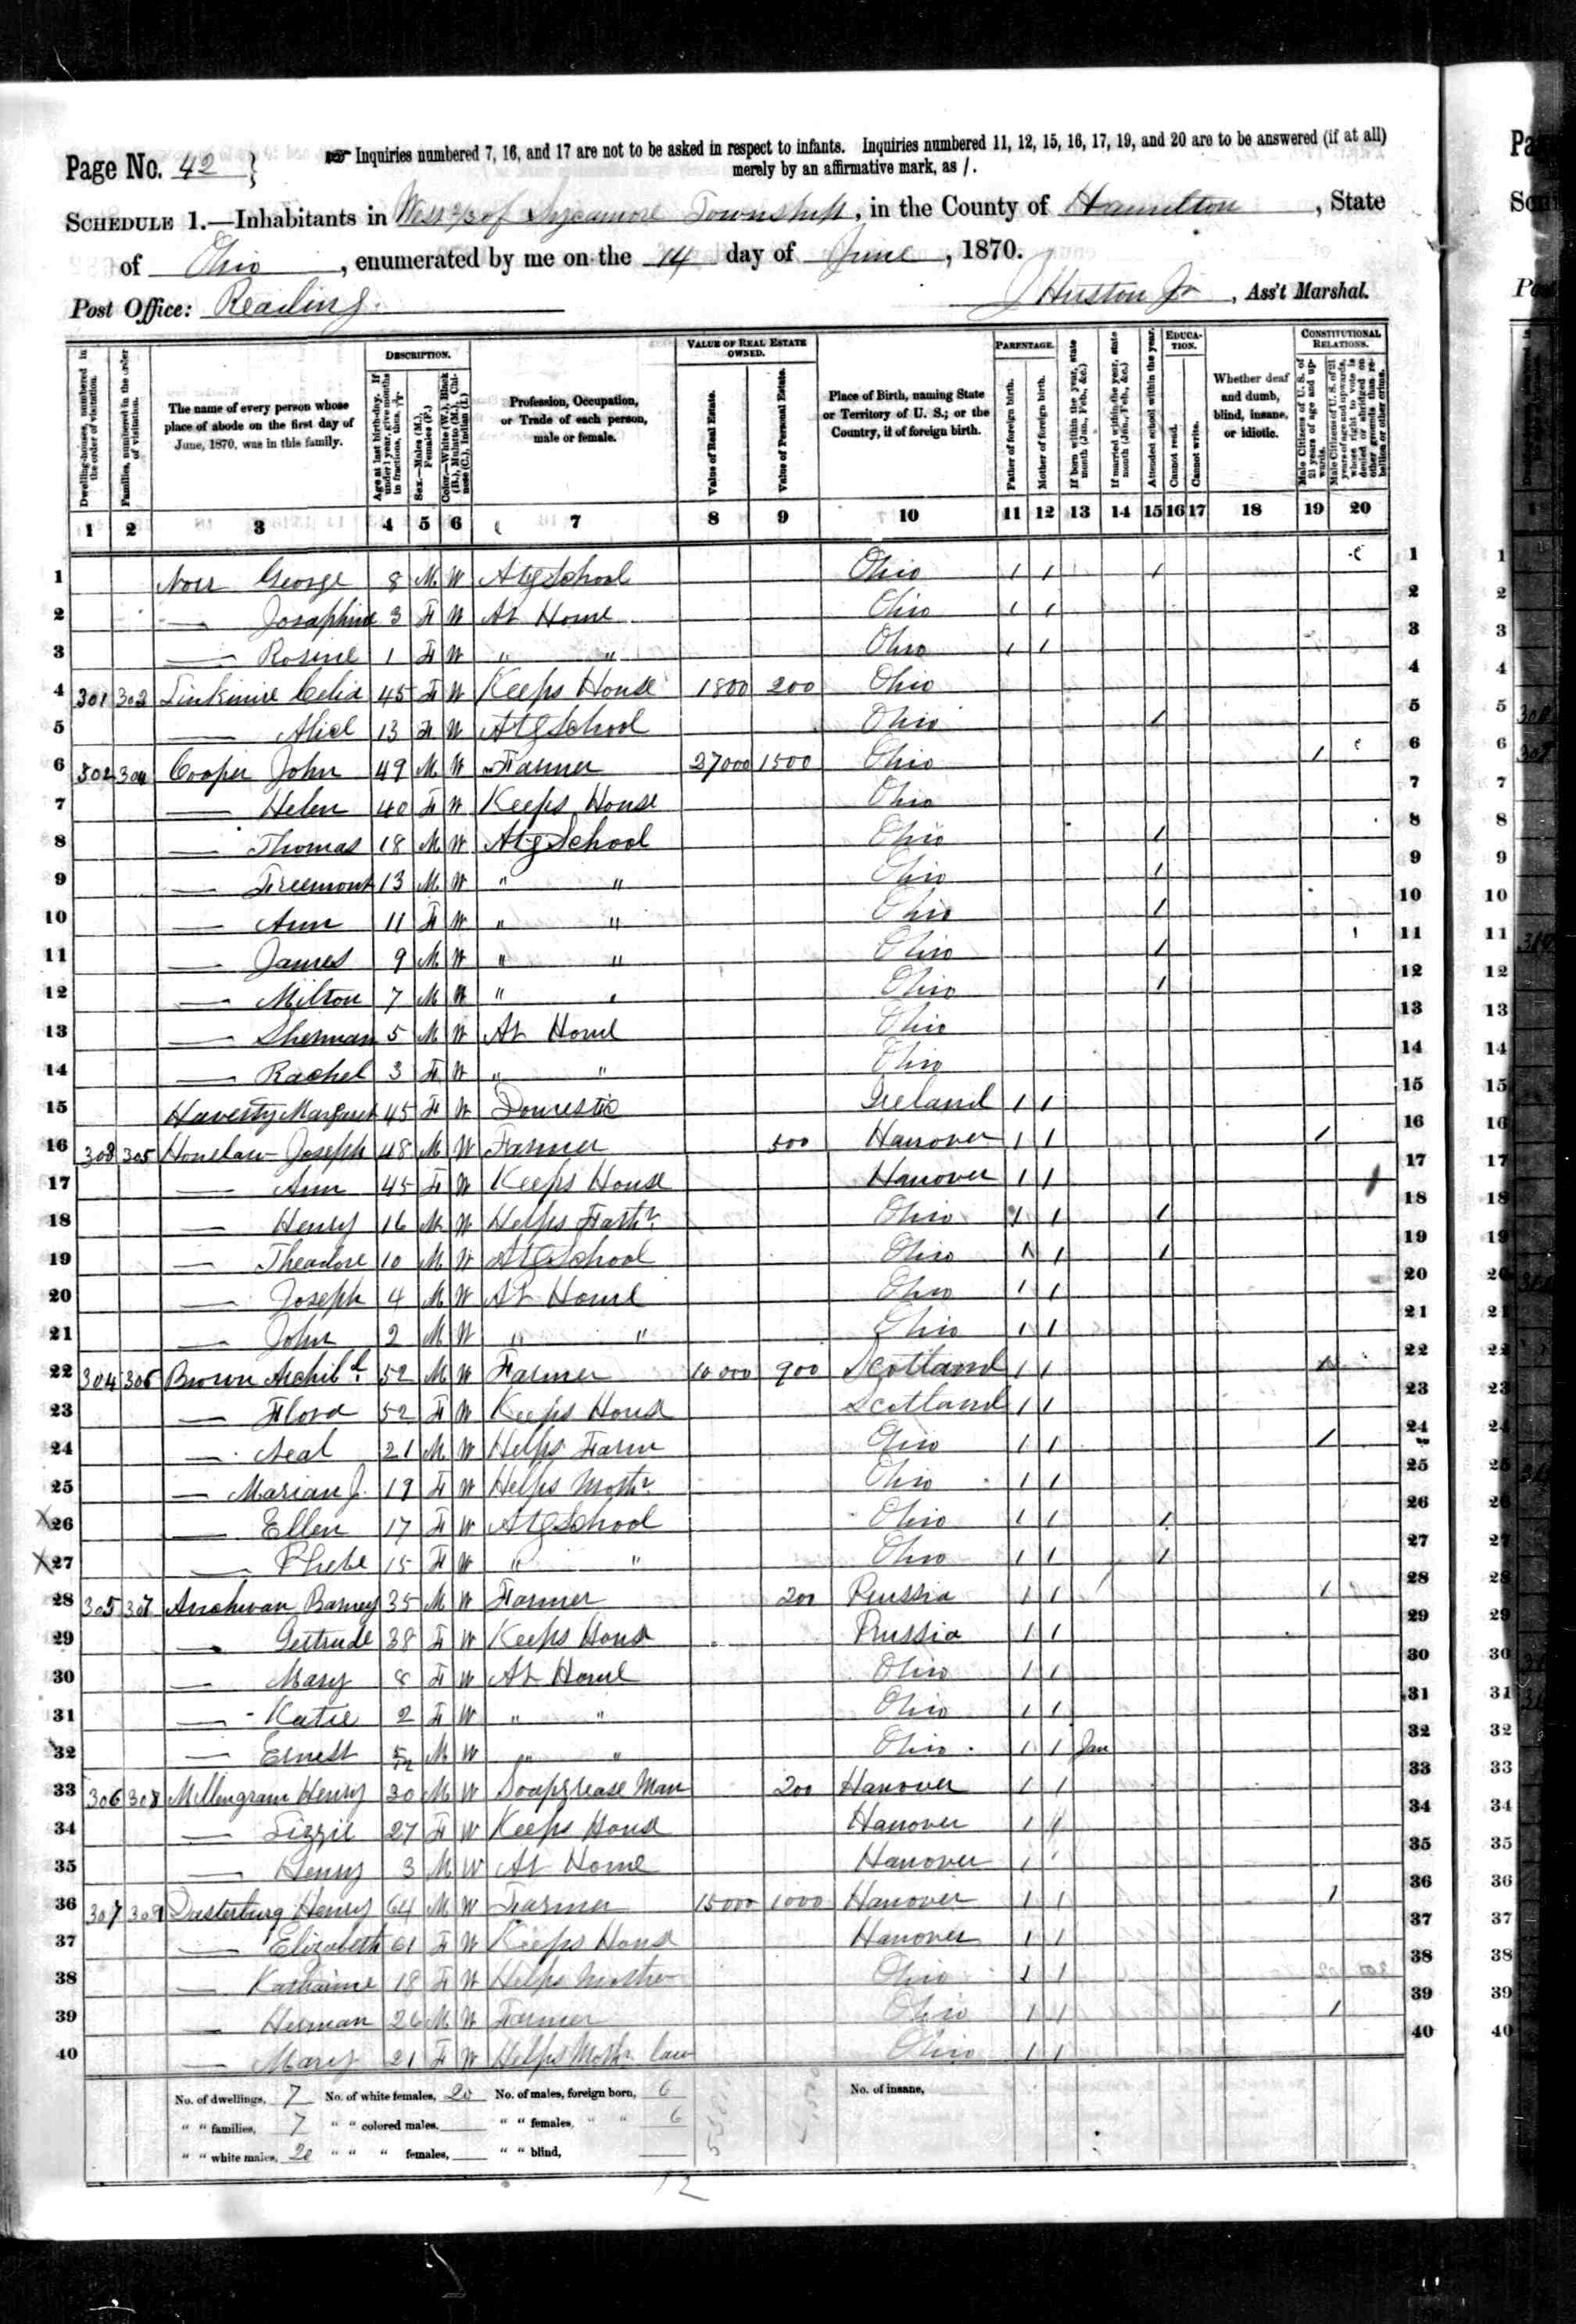 Page No. 42
Inquiries numbered 7, 16, and 17 are not to be asked in respect to infants. Inquiries numbered 11, 12, 15, 16, 17, 19, and 20 are to be answered (if at all)
merely by an affirmative mark, as /.
SCHEDULE 1.—Inhabitants in West 2/3 of Sycamore Township, in the County of Hamilton, State
of Ohio, enumerated by me on the 14 day of June, 1870.
Post Office: Reading. J Huston Jr, Ass't Marshal.
Dwelling-houses, numbered in the order of visitation.
Families, numbered in the order of visitation.
The name of every person whose place of abode on the first day of June, 1870, was in this family.
DESCRIPTION.
Age at last birth-day. If under 1 year, give months in fractions, thus, 3/12.
Sex.—Males (M.), Females (F.)
Color.—White (W.), Black (B.), Mulatto (M.), Chinese (C.), Indian (I.)
Profession, Occupation, or Trade of each person, male or female.
VALUE OF REAL ESTATE OWNED.
Value of Real Estate.
Value of Personal Estate.
Place of Birth, naming State or Territory of U. S.; or the Country, if of foreign birth.
PARENTAGE.
Father of foreign birth.
Mother of foreign birth.
If born within the year, state month (Jan., Feb., &c.)
If married within the year, state month (Jan., Feb., &c.)
Attended school within the year.
EDUCATION.
Cannot read.
Cannot write.
Whether deaf and dumb, blind, insane, or idiotic.
CONSTITUTIONAL RELATIONS.
Male Citizens of U. S. of 21 years of age and upwards.
Male Citizens of U. S. of 21 years of age and upwards, whose right to vote is denied or abridged on other grounds than rebellion or other crime.
1 2 3 4 5 6 7 8 9 10 11 12 13 14 15 16 17 18 19 20
1 George 8 M W Atg School Ohio / / / 1
2 — Josephine 3 F W At Home Ohio / / 2
3 — Rosine 1 F W " " Ohio / / 3
4 301 303 Celia 45 F W Keeps House 1800 200 Ohio 4
5 — Alice 13 F W Atg School Ohio / 5
6 302 304 Cooper John 49 M W Farmer 27000 1500 Ohio / 6
7 — Helen 40 F W Keeps House Ohio 7
8 — Thomas 18 M W Atg School Ohio / 8
9 — Freemont 13 M W " " Ohio / 9
10 — Ann 11 F W " " Ohio / 10
11 — James 9 M W " " Ohio / 11
12 — Milton 7 M W " " Ohio / 12
13 — Sherman 5 M W At Home Ohio 13
14 — Rachel 3 F W " " Ohio 14
15 Haversty Margaret 45 F W Domestic Ireland / / 15
16 303 305 Honslaw Joseph 48 M W Farmer 500 Hanover / / / 16
17 — Ann 45 F W Keeps House Hanover / / 17
18 — Henry 16 M W Helps Fathr Ohio / / / 18
19 — Theadore 10 M W Atg School Ohio / / / 19
20 — Joseph 4 M W At Home Ohio / / 20
21 — John 2 M W " " Ohio / / 21
22 304 306 Brown Archibd. 52 M W Farmer 10000 900 Scotland / / / 22
23 — Flora 52 F W Keeps House Scotland / / 23
24 — Neal 21 M W Helps Farm Ohio / / / 24
25 — Marian J. 19 F W Helps Mothr Ohio / / 25
26 — Ellen 17 F W Atg School Ohio / / / 26
27 — Phebe 15 F W " " Ohio / / / 27
28 305 307 Barney 35 M W Farmer 200 Prussia / / / 28
29 — Gertrude 38 F W Keeps House Prussia / / 29
30 — Mary 8 F W At Home Ohio / / 30
31 — Katie 2 F W " " Ohio / / 31
32 — Ernest 5/12 M W " " Ohio / / Jan 32
33 306 308 Mellengram Henry 30 M W Soapgrease Man 200 Hanover / / 33
34 — Lizzie 27 F W Keeps House Hanover / / 34
35 — Henry 3 M W At Home Hanover / / 35
36 307 309 Dasterburg Henry 64 M W Farmer 15000 1000 Hanover / / / 36
37 — Elizabeth 61 F W Keeps House Hanover / / 37
38 — Katharine 18 F W Helps Mother Ohio / / 38
39 — Herman 26 M W Farmer Ohio / / / 39
40 — Mary 21 F W Helps Mothr law Ohio / / 40
No. of dwellings, 7 No. of white females, 20 No. of males, foreign born, 6 No. of insane,
" " families, 7 " " colored males, " " females, " " 6
" " white males, 20 " " " females, " " blind,
12